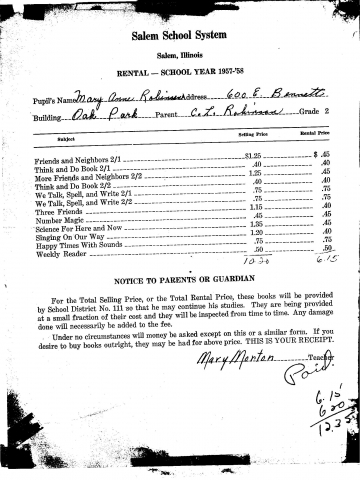 Salem School System
Salem, Illinois
RENTAL — SCHOOL YEAR 1957-'58
Pupil's Name Mary Anne Robinson Address 600 E. Bennett
Building Oak Park Parent C. L. Robinson Grade 2
Subject Selling Price Rental Price
Friends and Neighbors 2/1 $1.25 $ .45
Think and Do Book 2/1 .40 .40
More Friends and Neighbors 2/2 1.25 .45
Think and Do Book 2/2 .40 .40
We Talk, Spell, and Write 2/1 .75 .75
We Talk, Spell, and Write 2/2 .75 .75
Three Friends 1.15 .40
Number Magic .45 .45
Science For Here and Now 1.35 .45
Singing On Our Way 1.20 .40
Happy Times With Sounds .75 .75
Weekly Reader .50 .50
10.20 6.15
NOTICE TO PARENTS OR GUARDIAN
For the Total Selling Price, or the Total Rental Price, these books will be provided
by School District No. 111 so that he may continue his studies. They are being provided
at a small fraction of their cost and they will be inspected from time to time. Any damage
done will necessarily be added to the fee.
Under no circumstances will money be asked except on this or a similar form. If you
desire to buy books outright, they may be had for above price. THIS IS YOUR RECEIPT.
Mary Monton Teacher
Paid
6.15
620
12.35